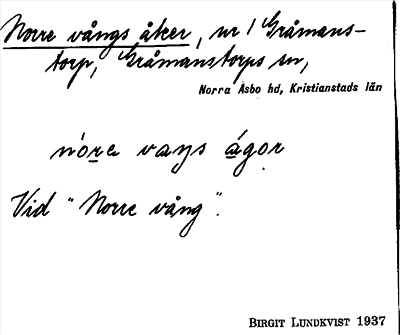 Norre vångs åker, nr 1 Gråmans-
torp, Gråmanstorps sn,
Norra Åsbo hd, Kristianstads län
nore vays ágor
Vid "Norre vång".
BIRGIT LUNDKVIST 1937